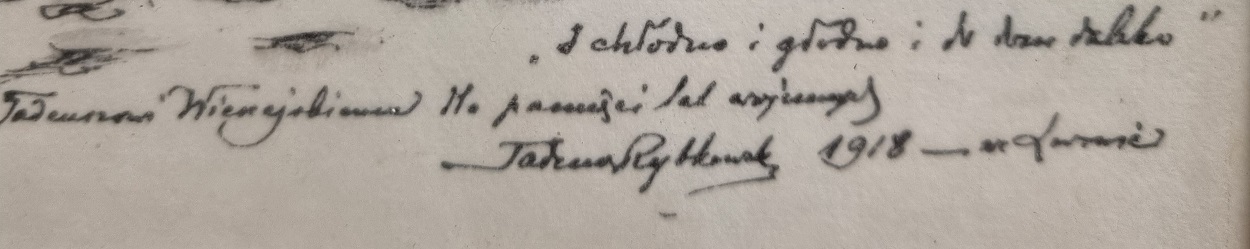 „I chłodno i głodno i do domu daleko”
Tadeuszowi Na pamięci lat wojennych
Tadeusz Rybkowski 1918 — we Lwowie